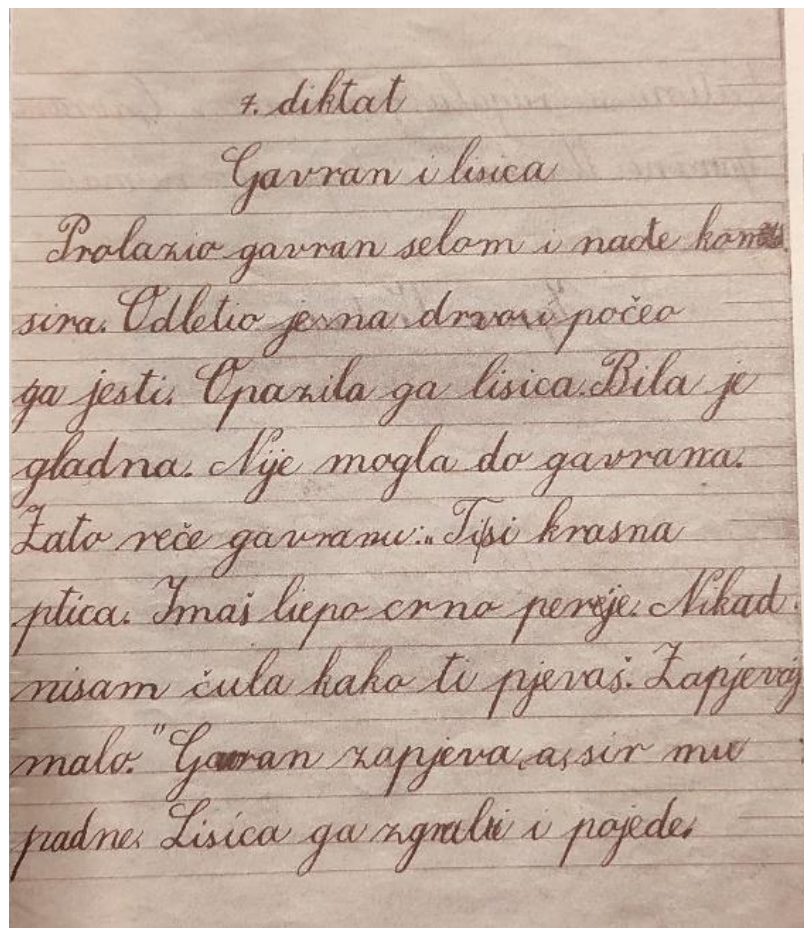 7. diktat
Gavran i lisica
Prolazio gavran selom i nađe
sira. Odletio je na drvo i počeo
ga jesti. Opazila ga lisica. Bila je
gladna. Nije mogla do gavrana.
Zato reče gavranu: „Ti si krasna
ptica. Imaš liepo crno perje. Nikad
nisam čula kako ti pjevaš. Zapjevaj
malo." Gavran zapjeva, a sir mu
padne. Lisica ga zgrabi i pojede.